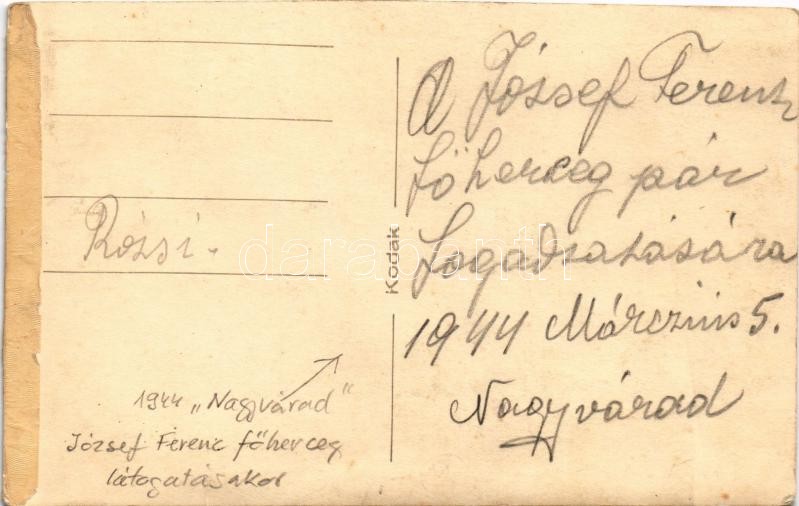 Rózsi.
1944 „Nagyvárad"
József Ferenc főherceg
látogatásakor
Kodak
A József Ferenc
főherceg pár
fogadtatására
1944 Márczius 5.
Nagyvárad
darabanth